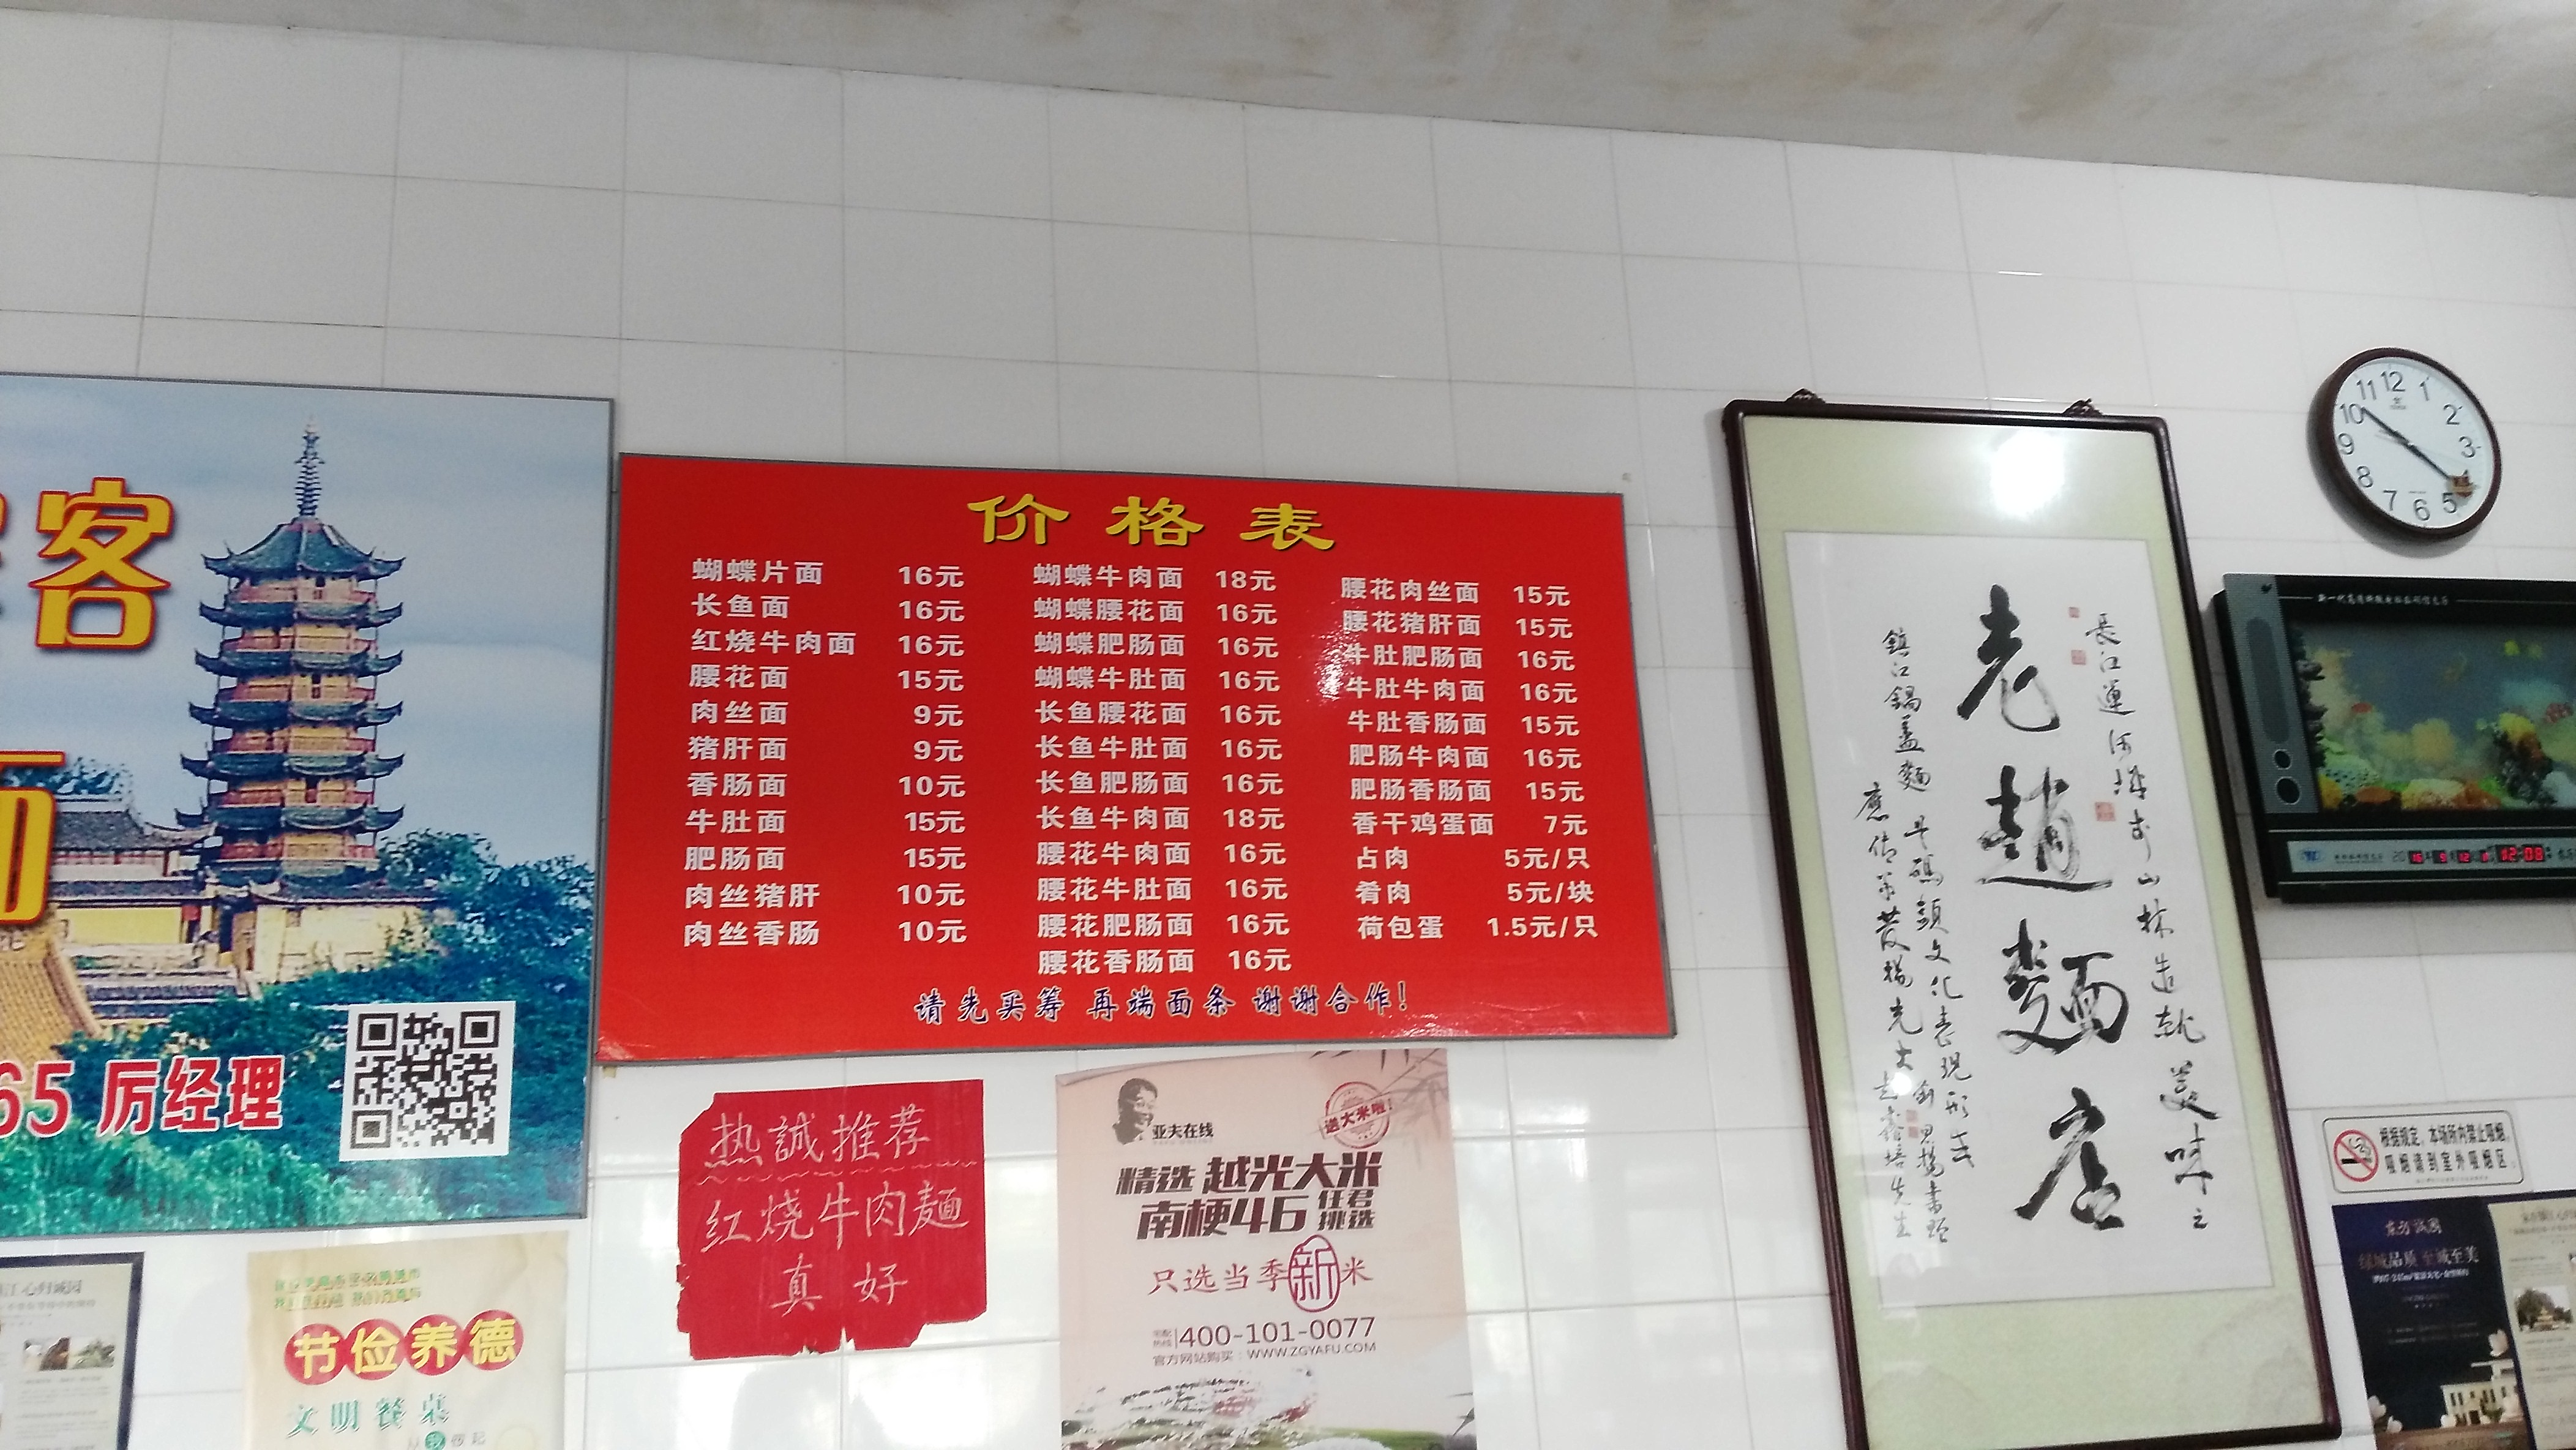 客
65 厉经理
价格表
蝴蝶片面 16元
长鱼面 16元
红烧牛肉面 16元
腰花面 15元
肉丝面 9元
猪肝面 9元
香肠面 10元
牛肚面 15元
肥肠面 15元
肉丝猪肝 10元
肉丝香肠 10元
蝴蝶牛肉面 18元
蝴蝶腰花面 16元
蝴蝶肥肠面 16元
蝴蝶牛肚面 16元
长鱼腰花面 16元
长鱼牛肚面 16元
长鱼肥肠面 16元
长鱼牛肉面 18元
腰花牛肉面 16元
腰花牛肚面 16元
腰花肥肠面 16元
腰花香肠面 16元
腰花肉丝面 15元
腰花猪肝面 15元
牛肚肥肠面 16元
牛肚牛肉面 16元
牛肚香肠面 15元
肥肠牛肉面 16元
肥肠香肠面 15元
香干鸡蛋面 7元
占肉 5元/只
肴肉 5元/块
荷包蛋 1.5元/只
请先买筹 再端面条 谢谢合作!
热誠推荐
红烧牛肉麵
真好
亚夫在线
送大米啦!
精选 越光大米
南梗46 任君挑选
只选当季新米
400-101-0077
官方网站购买：WWW.ZGYAFU.COM
节俭养德
文明餐桌
老趙麵店
鎮江鍋蓋麵
11 12 1 2 3 4 5 6 7 8 9 10
12:08
根据规定，本场所内禁止吸烟，
吸烟请到室外吸烟区。
绿城品质 至诚至美